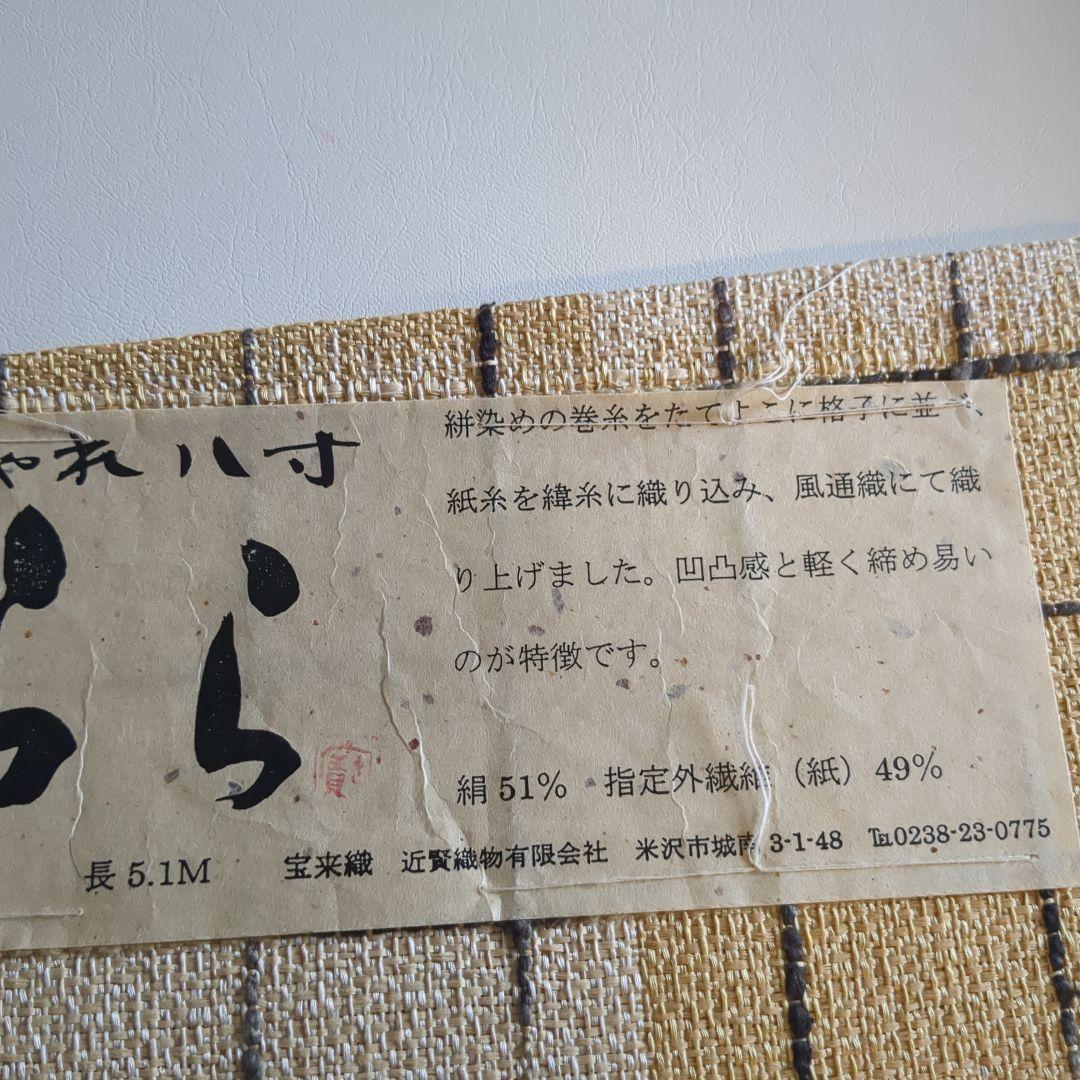 やれ八寸
ら
絣染めの巻糸をたてよこに格子に並べ、
紙糸を緯糸に織り込み、風通織にて織
り上げました。凹凸感と軽く締め易い
のが特徴です。
絹 51%　指定外繊維（紙）49%
長 5.1M　宝来織　近賢織物有限会社　米沢市城南 3-1-48　℡0238-23-0775